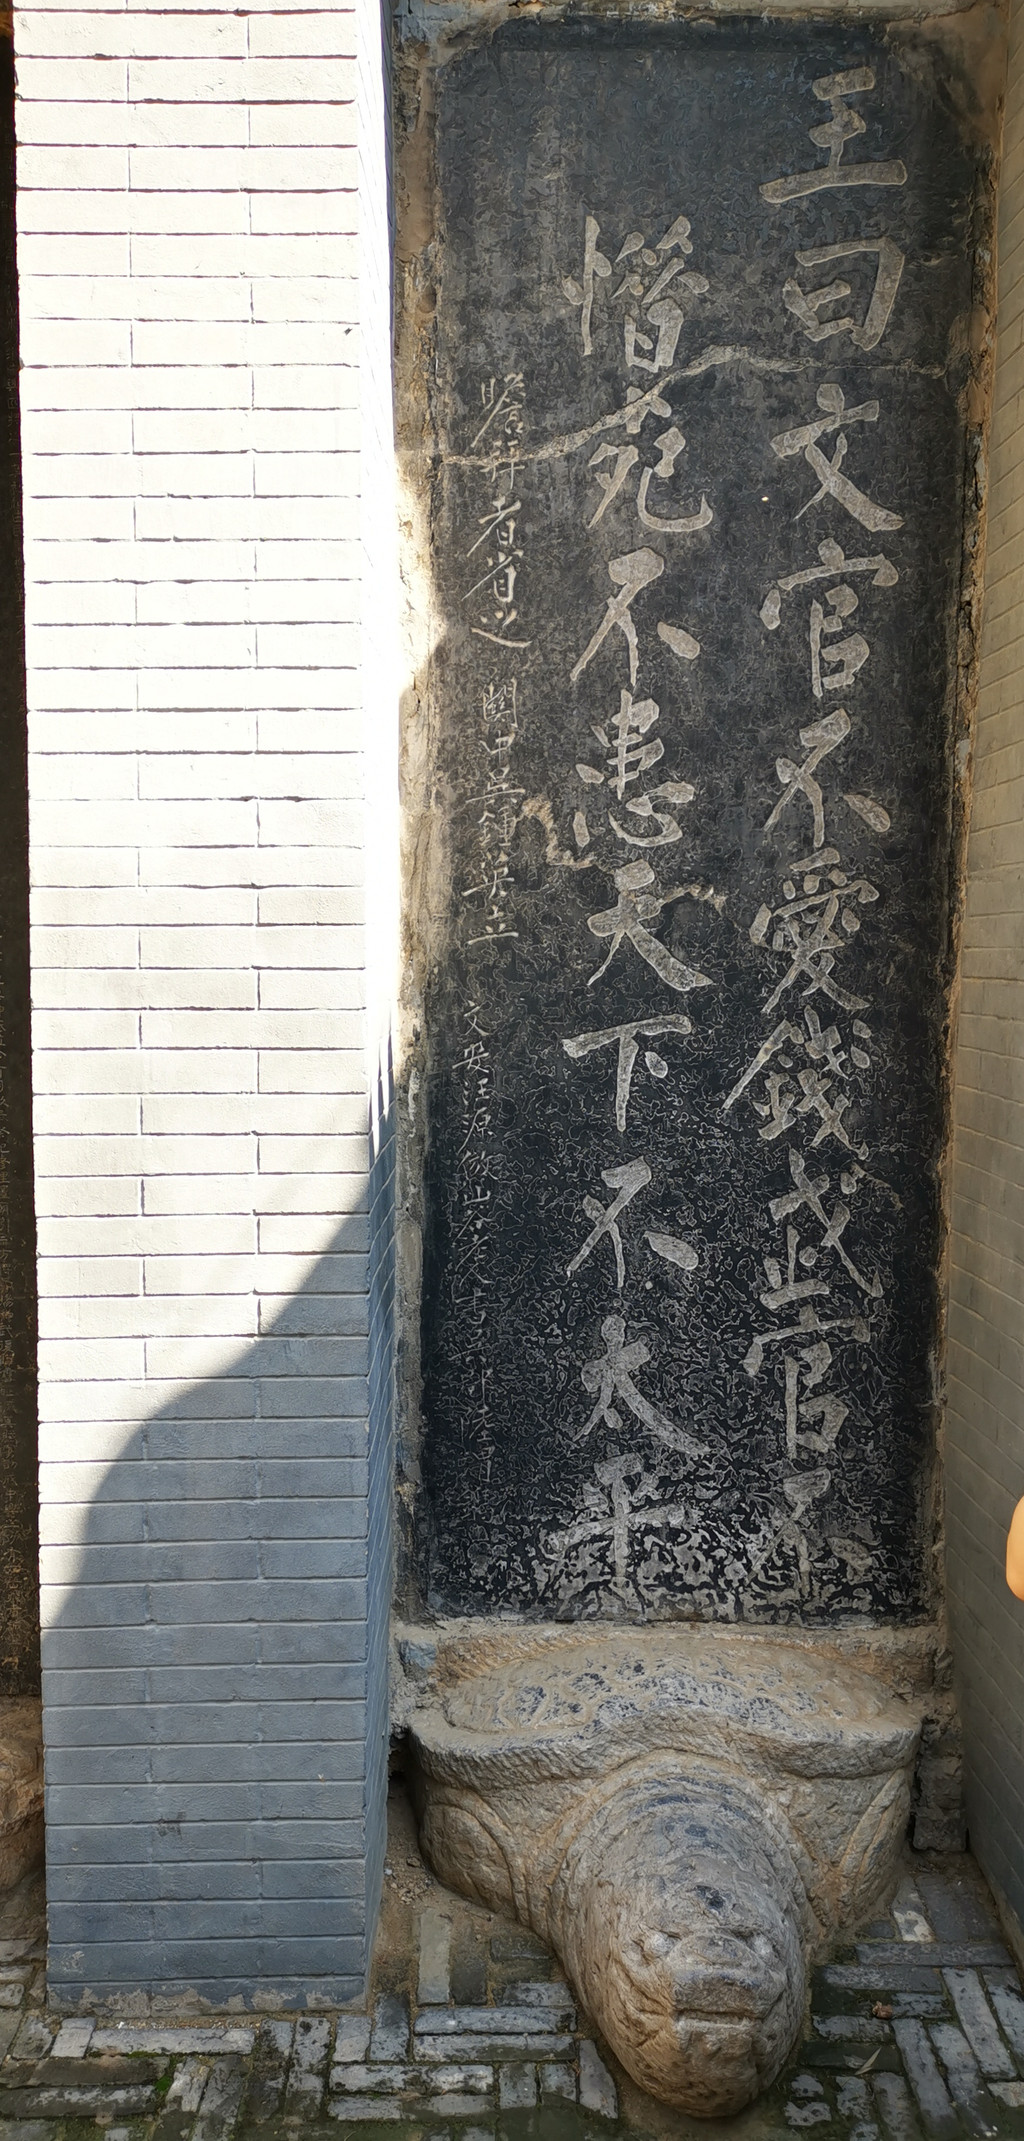 王曰文官不愛錢武官不
惜死不患天下不太平
瞻拜者省之 關中吳鍾英立 文安汪原倣山谷老